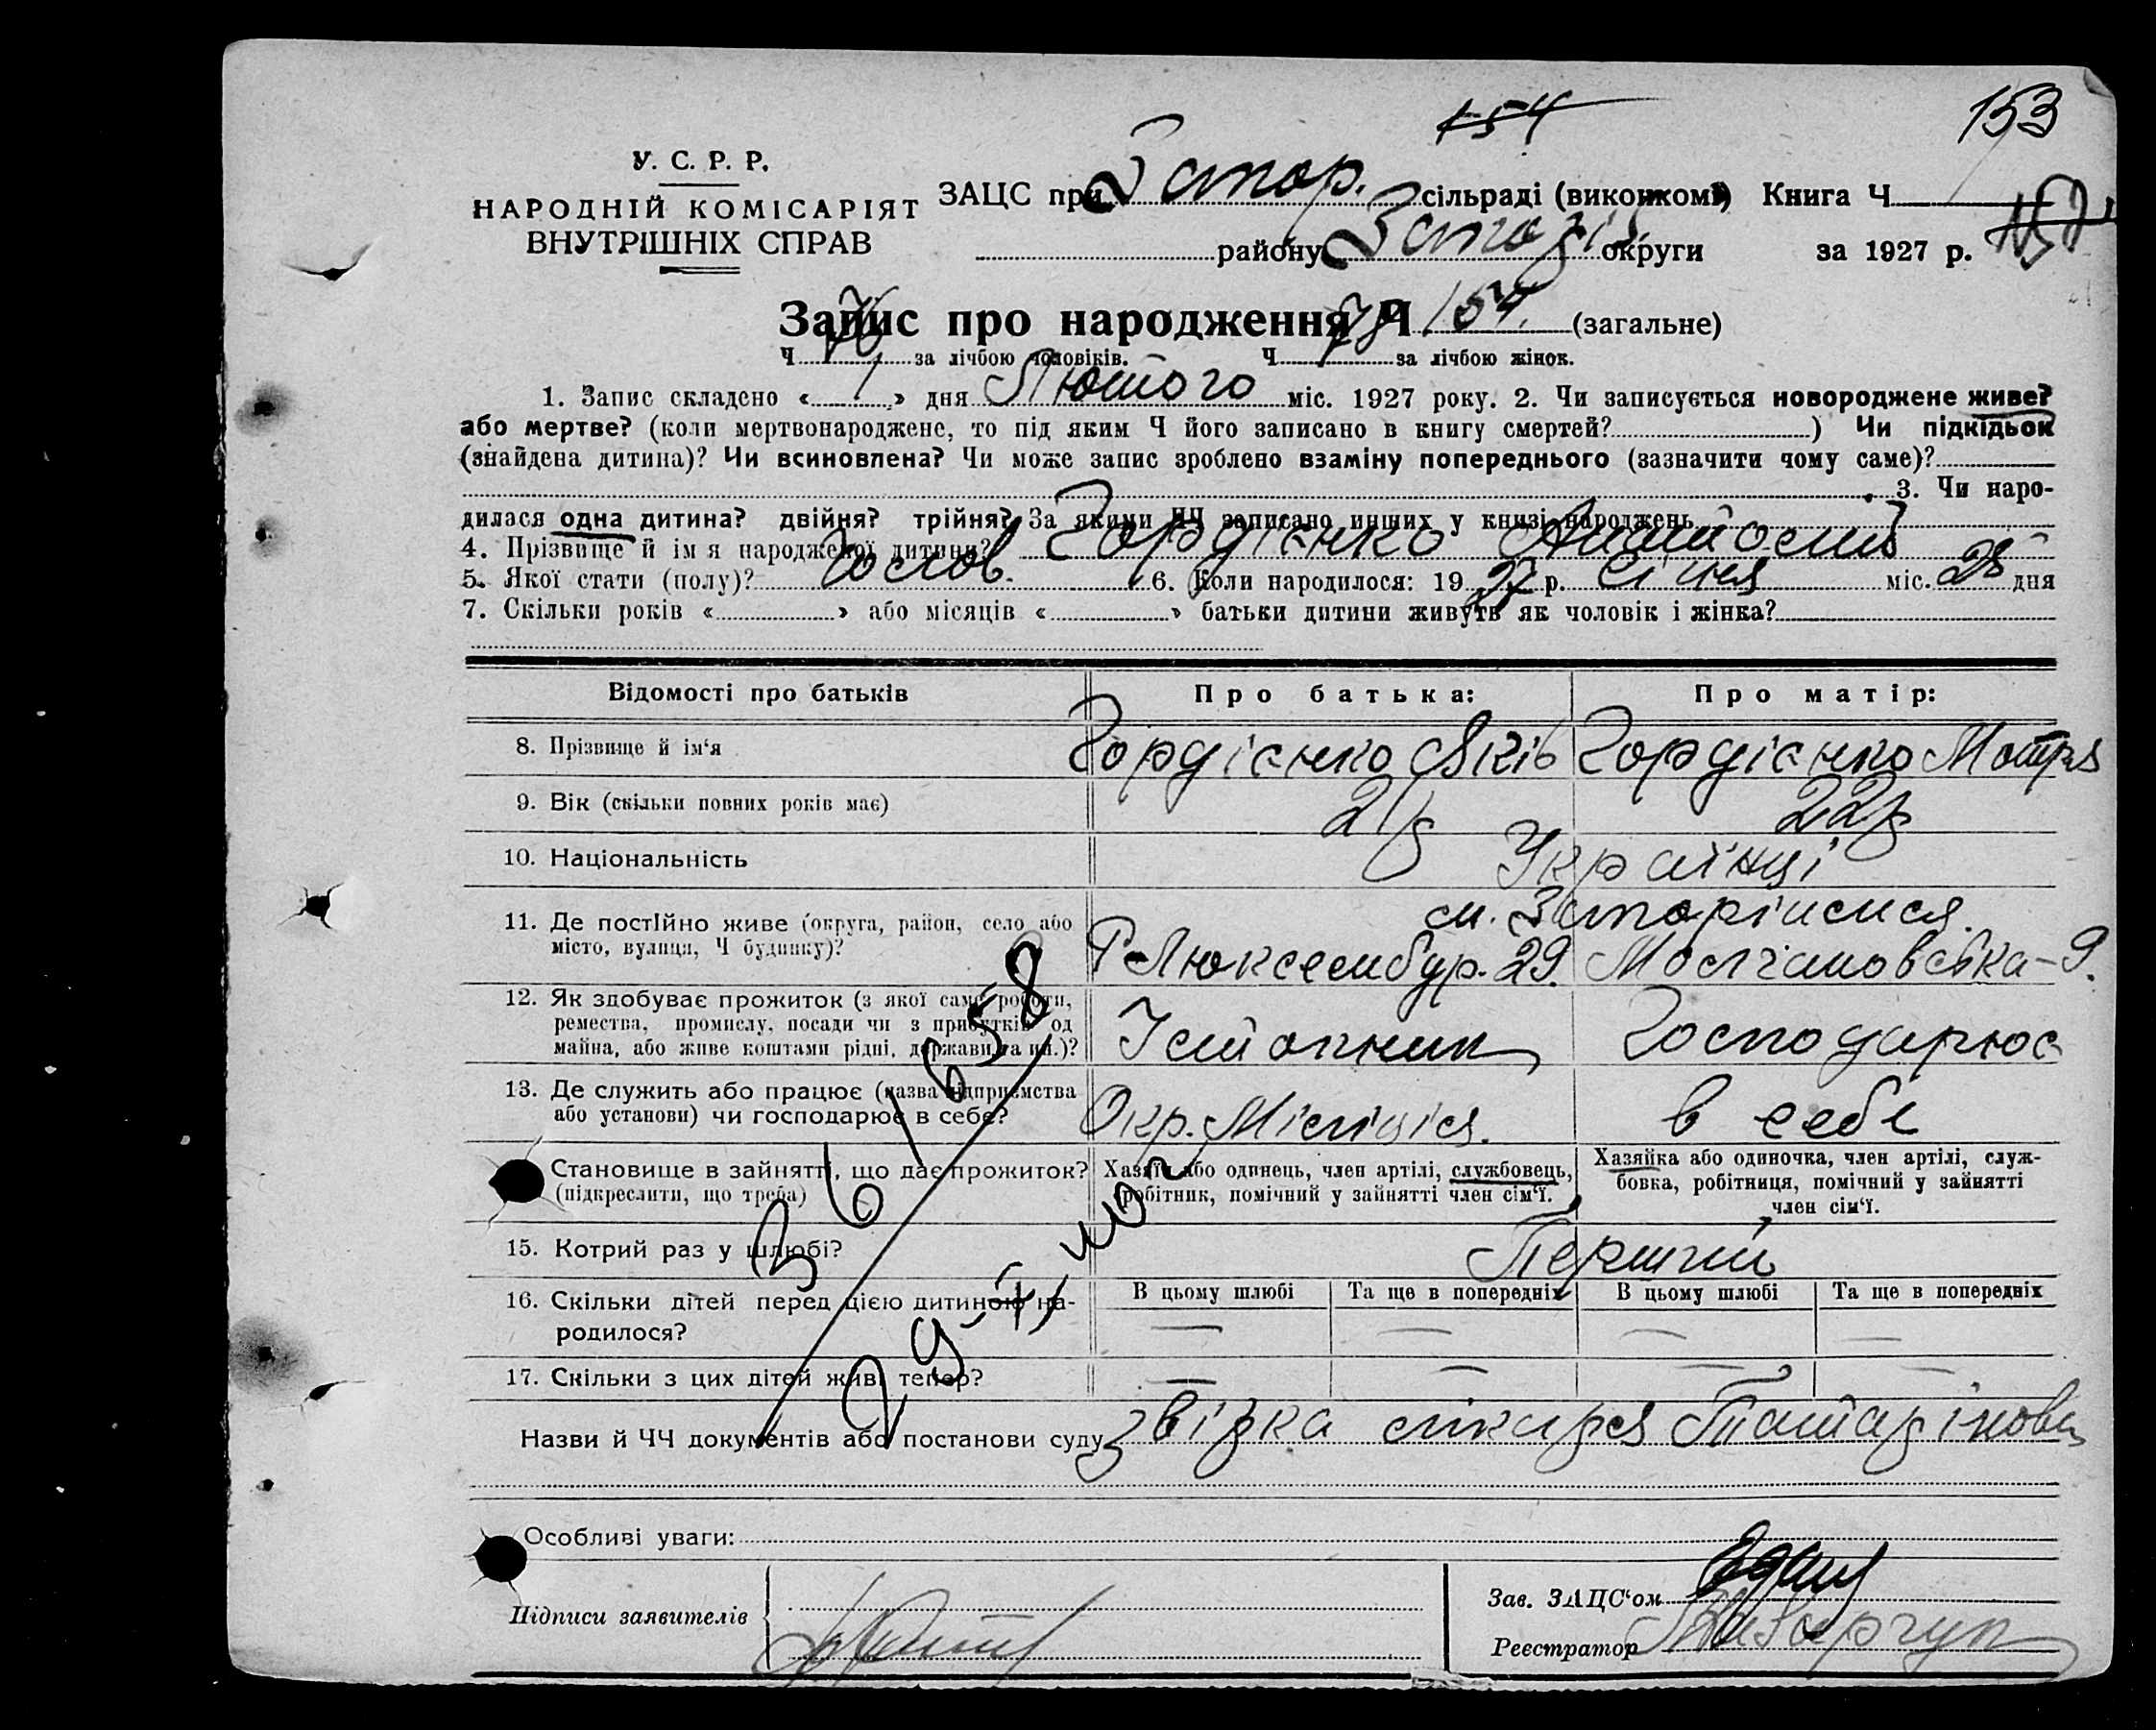 154
153
У. С. Р. Р.
НАРОДНІЙ КОМІСАРІЯТ
ВНУТРІШНІХ СПРАВ
ЗАЦС при Запор. сільраді (виконкомі) Книга Ч
району Запоріз. округи за 1927 р.
Запис про народження Ч 154. (загальне)
Ч 76 за лічбою чоловіків. Ч 78 за лічбою жінок.
1. Запис складено « 1 » дня Лютого міс. 1927 року. 2. Чи записується новороджене живе?
або мертве? (коли мертвонароджене, то під яким Ч його записано в книгу смертей? ) Чи підкідьок
(знайдена дитина)? Чи всиновлена? Чи може запис зроблено взаміну попереднього (зазначити чому саме)?
3. Чи наро-
дилася одна дитина? двійня? трійня? За якими ЧЧ записано инших у книзі народжень
4. Прізвище й ім я народженої дитини? Гордієнко Анатосій
5. Якої стати (полу)? Чолов. 6. Коли народилося: 19 27 р. січня міс. 28 дня
7. Скільки років « » або місяців « » батьки дитини живуть як чоловік і жінка?
Відомості про батьків Про батька: Про матір:
8. Прізвище й ім‘я Гордієнко Яків Гордієнко Мотря
9. Вік (скільки повних років має) 21р 22р
10. Національність Українці
11. Де постІйно живе (округа, район, село або м. Запоріжжя
місто, вулиця, Ч будинку)? Р Люксембур. 29. Молчановська-9.
12. Як здобуває прожиток (з якої саме роботи,
ремества, промислу, посади чи з прибутків од Істопник Господарює
майна, або живе коштами рідні, держави та ин.)?
13. Де служить або працює (назва підприємства
або установи) чи господарює в себе? Окр. Міліція. в себе
Становище в зайнятті, що дає прожиток? Хазяїн або одинець, член артілі, службовець, Хазяйка або одиночка, член артілі, служ-
(підкреслити, що треба) робітник, помічний у зайнятті член сім‘ї. бовка, робітниця, помічний у зайнятті
член сім‘ї.
15. Котрий раз у шлюбі? Перший
16. Скільки дітей перед цією дитиною на- В цьому шлюбі Та ще в попередніх В цьому шлюбі Та ще в попередніх
родилося? — — — —
17. Скільки з цих дітей живі тепер? — — — —
Назви й ЧЧ документів або постанови суду Звізка лікаря Татарінова
Особливі уваги:
Підписи заявителів
Зав. ЗАЦС‘ом
Реєстратор